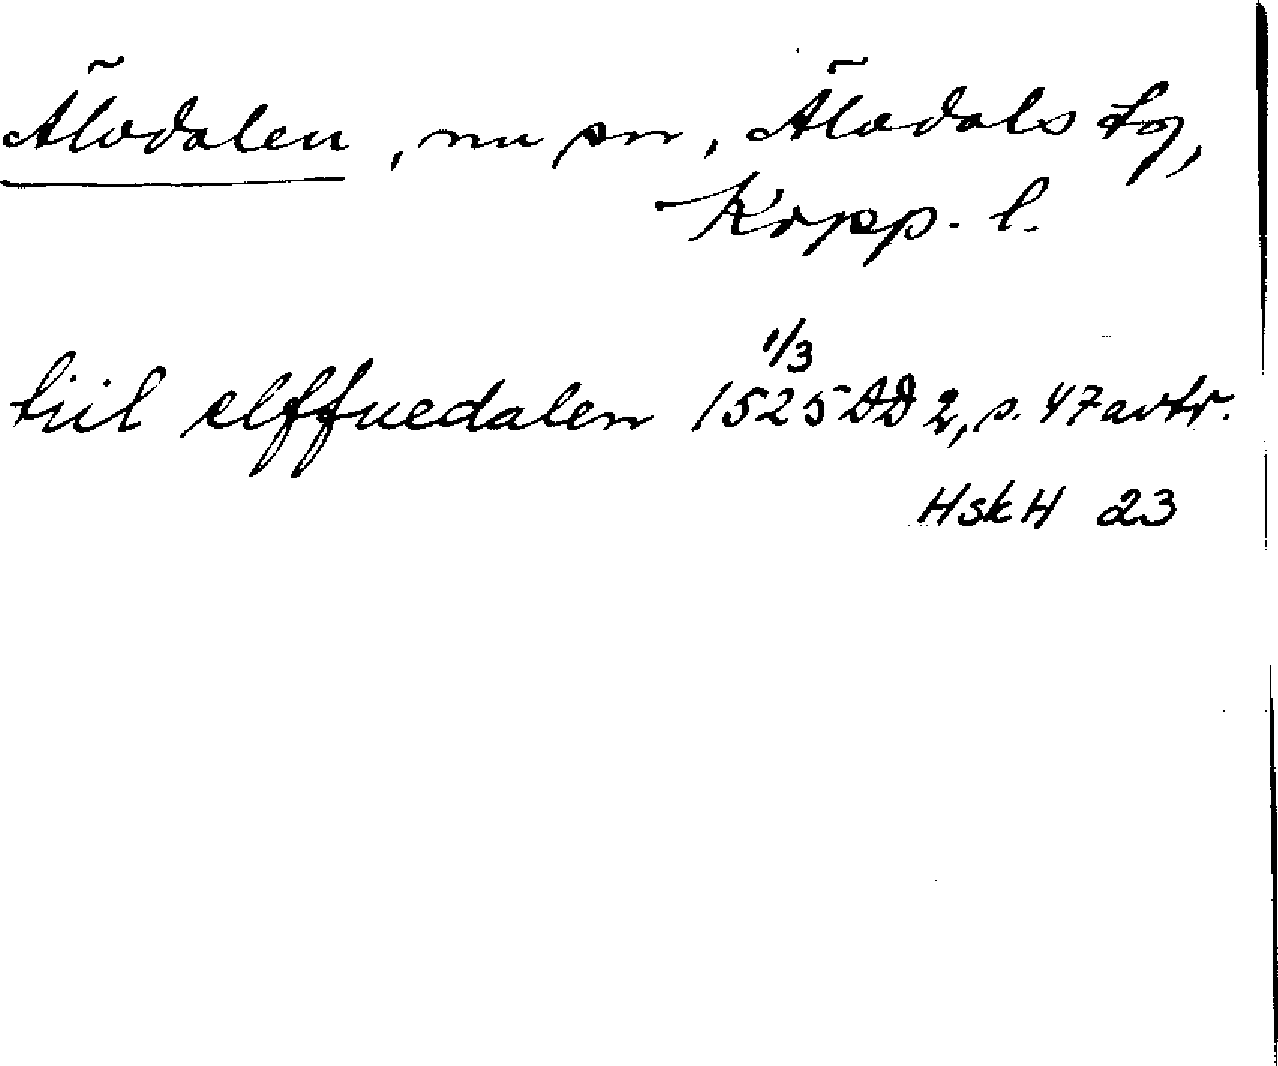 Älvdalen, nu sn, Älvdals tg,
Kopp. l.
1/3
tiil elffuedalen 1525 DD 2, s. 47 avtr.
HskH 23